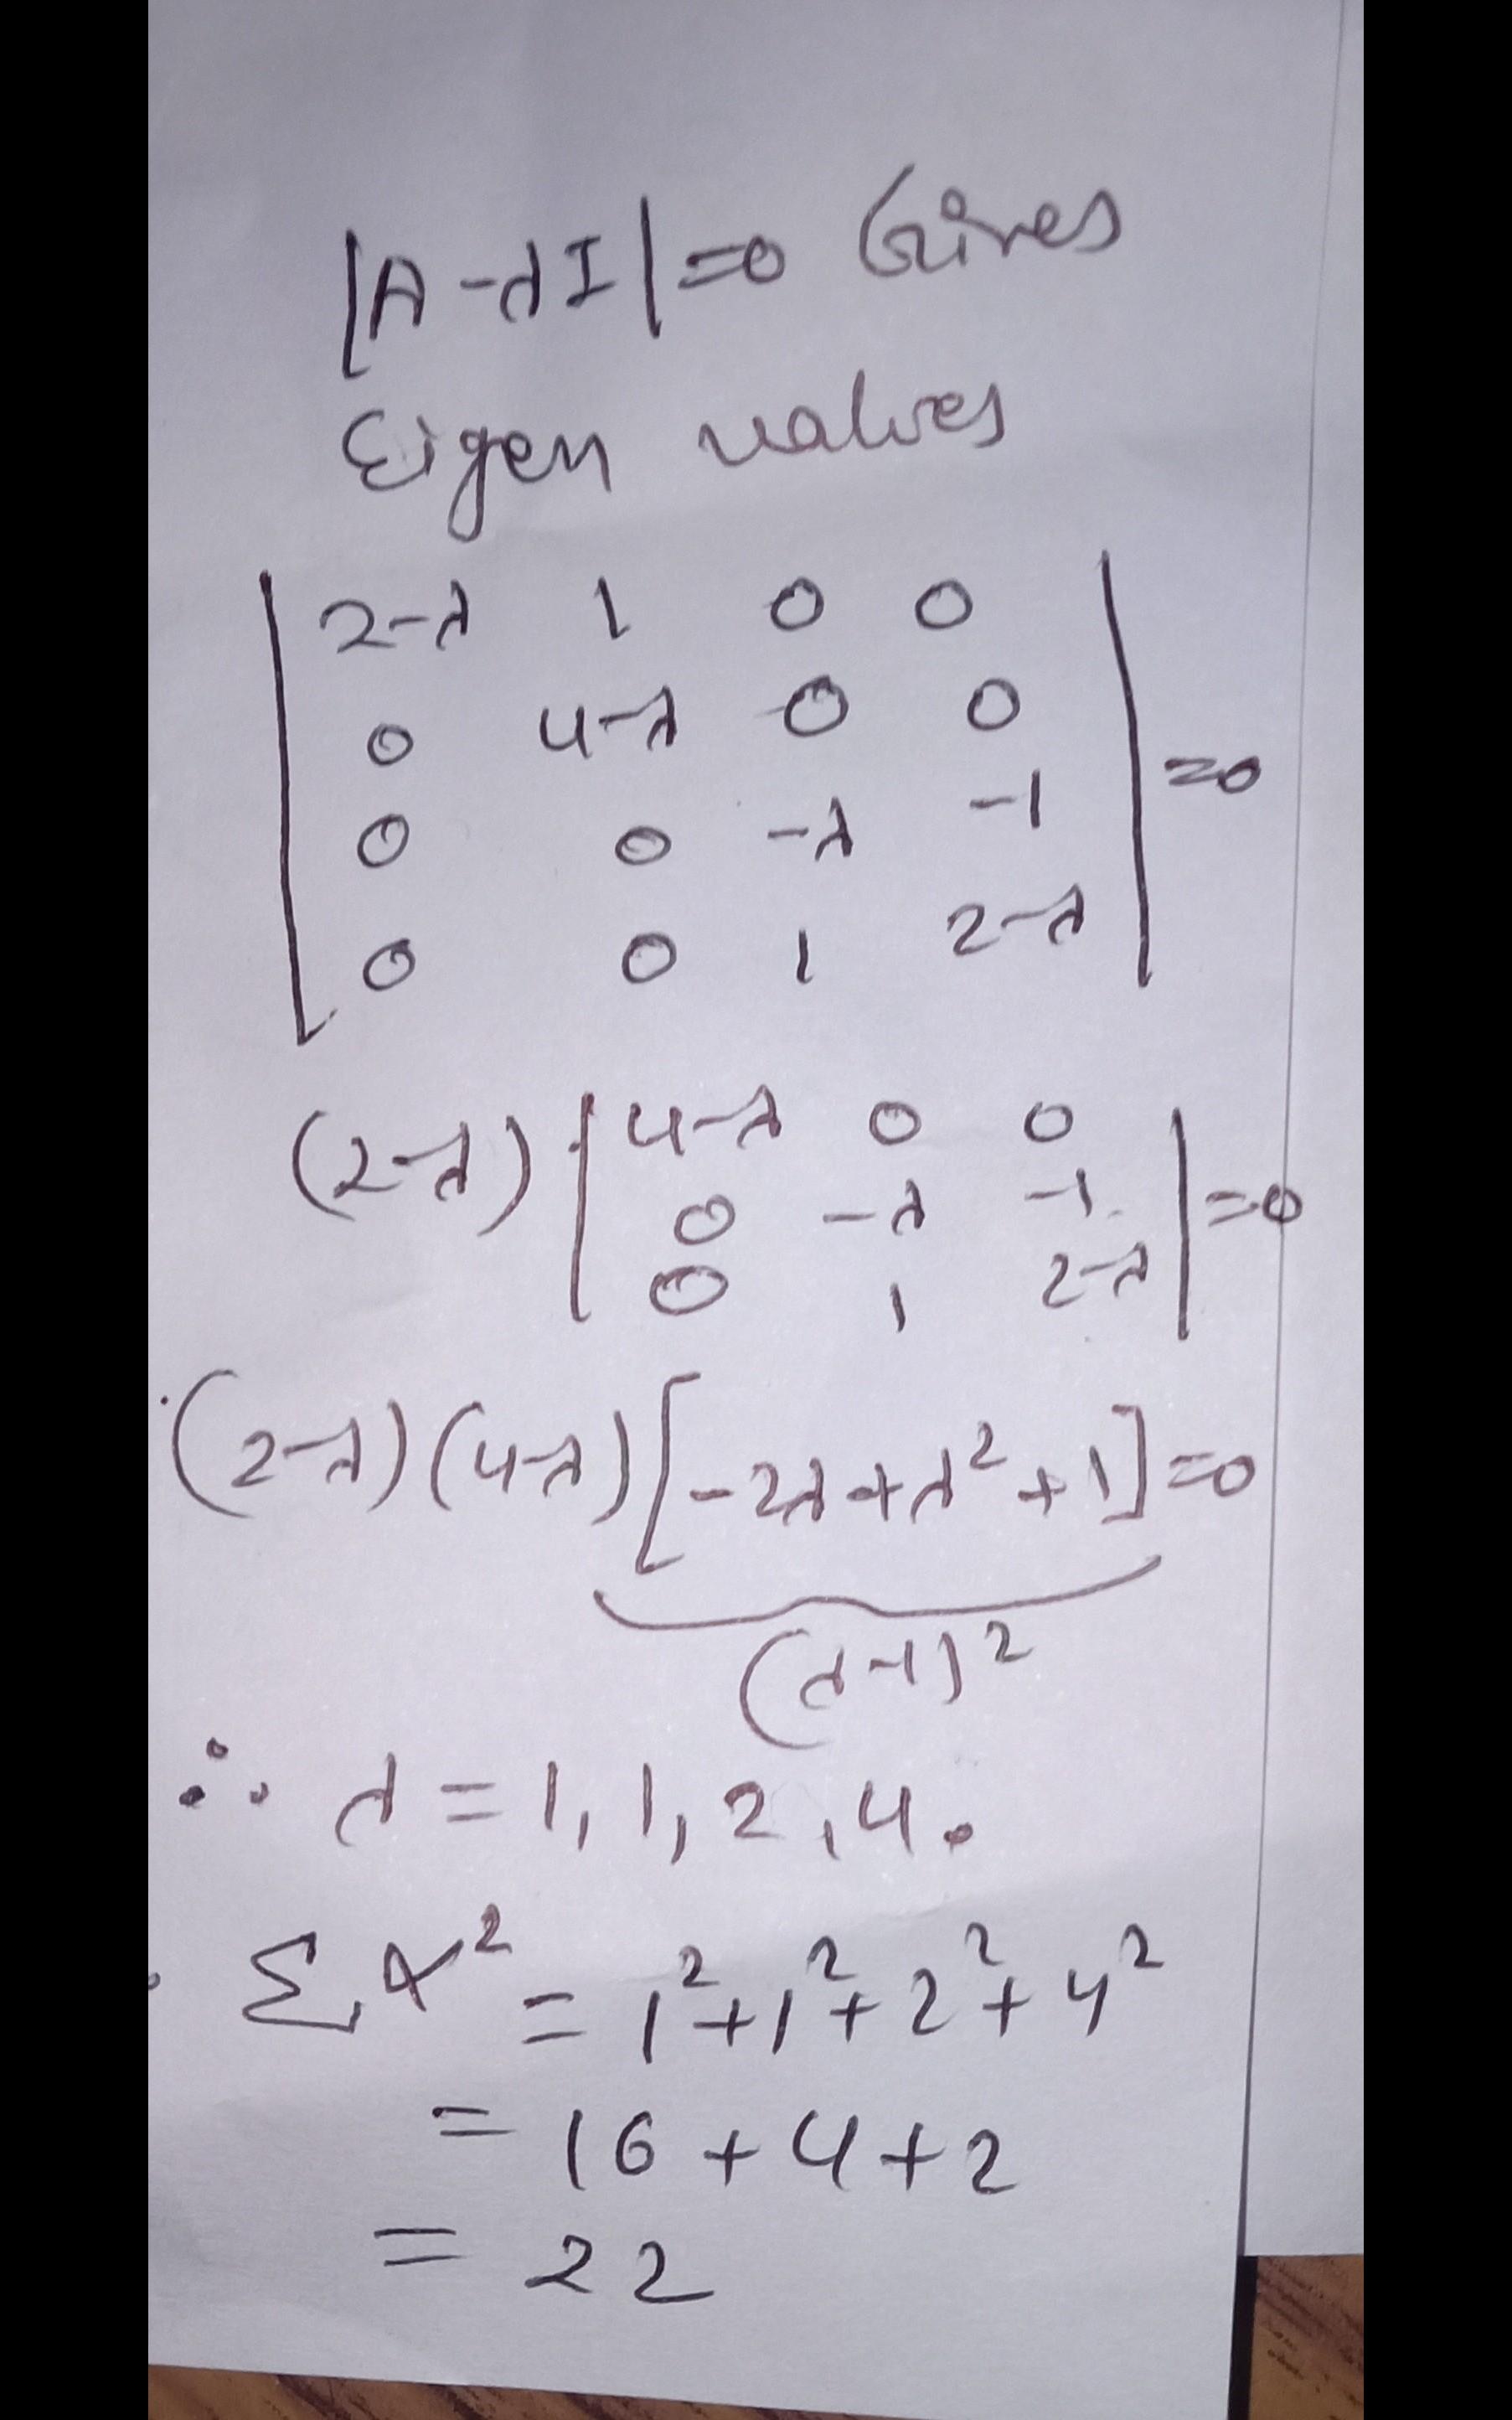 |A-λI|=0 Gives
Eigen values
| 2-λ 1 0 0 |
| 0 4-λ 0 0 | =0
| 0 0 -λ -1 |
| 0 0 1 2-λ |
(2-λ) | 4-λ 0 0 |
| 0 -λ -1 | =0
| 0 1 2-λ |
(2-λ)(4-λ)[-2λ+λ²+1]=0
(λ-1)²
∴ λ = 1, 1, 2, 4.
Σ α² = 1²+1²+2²+4²
= 16+4+2
= 22